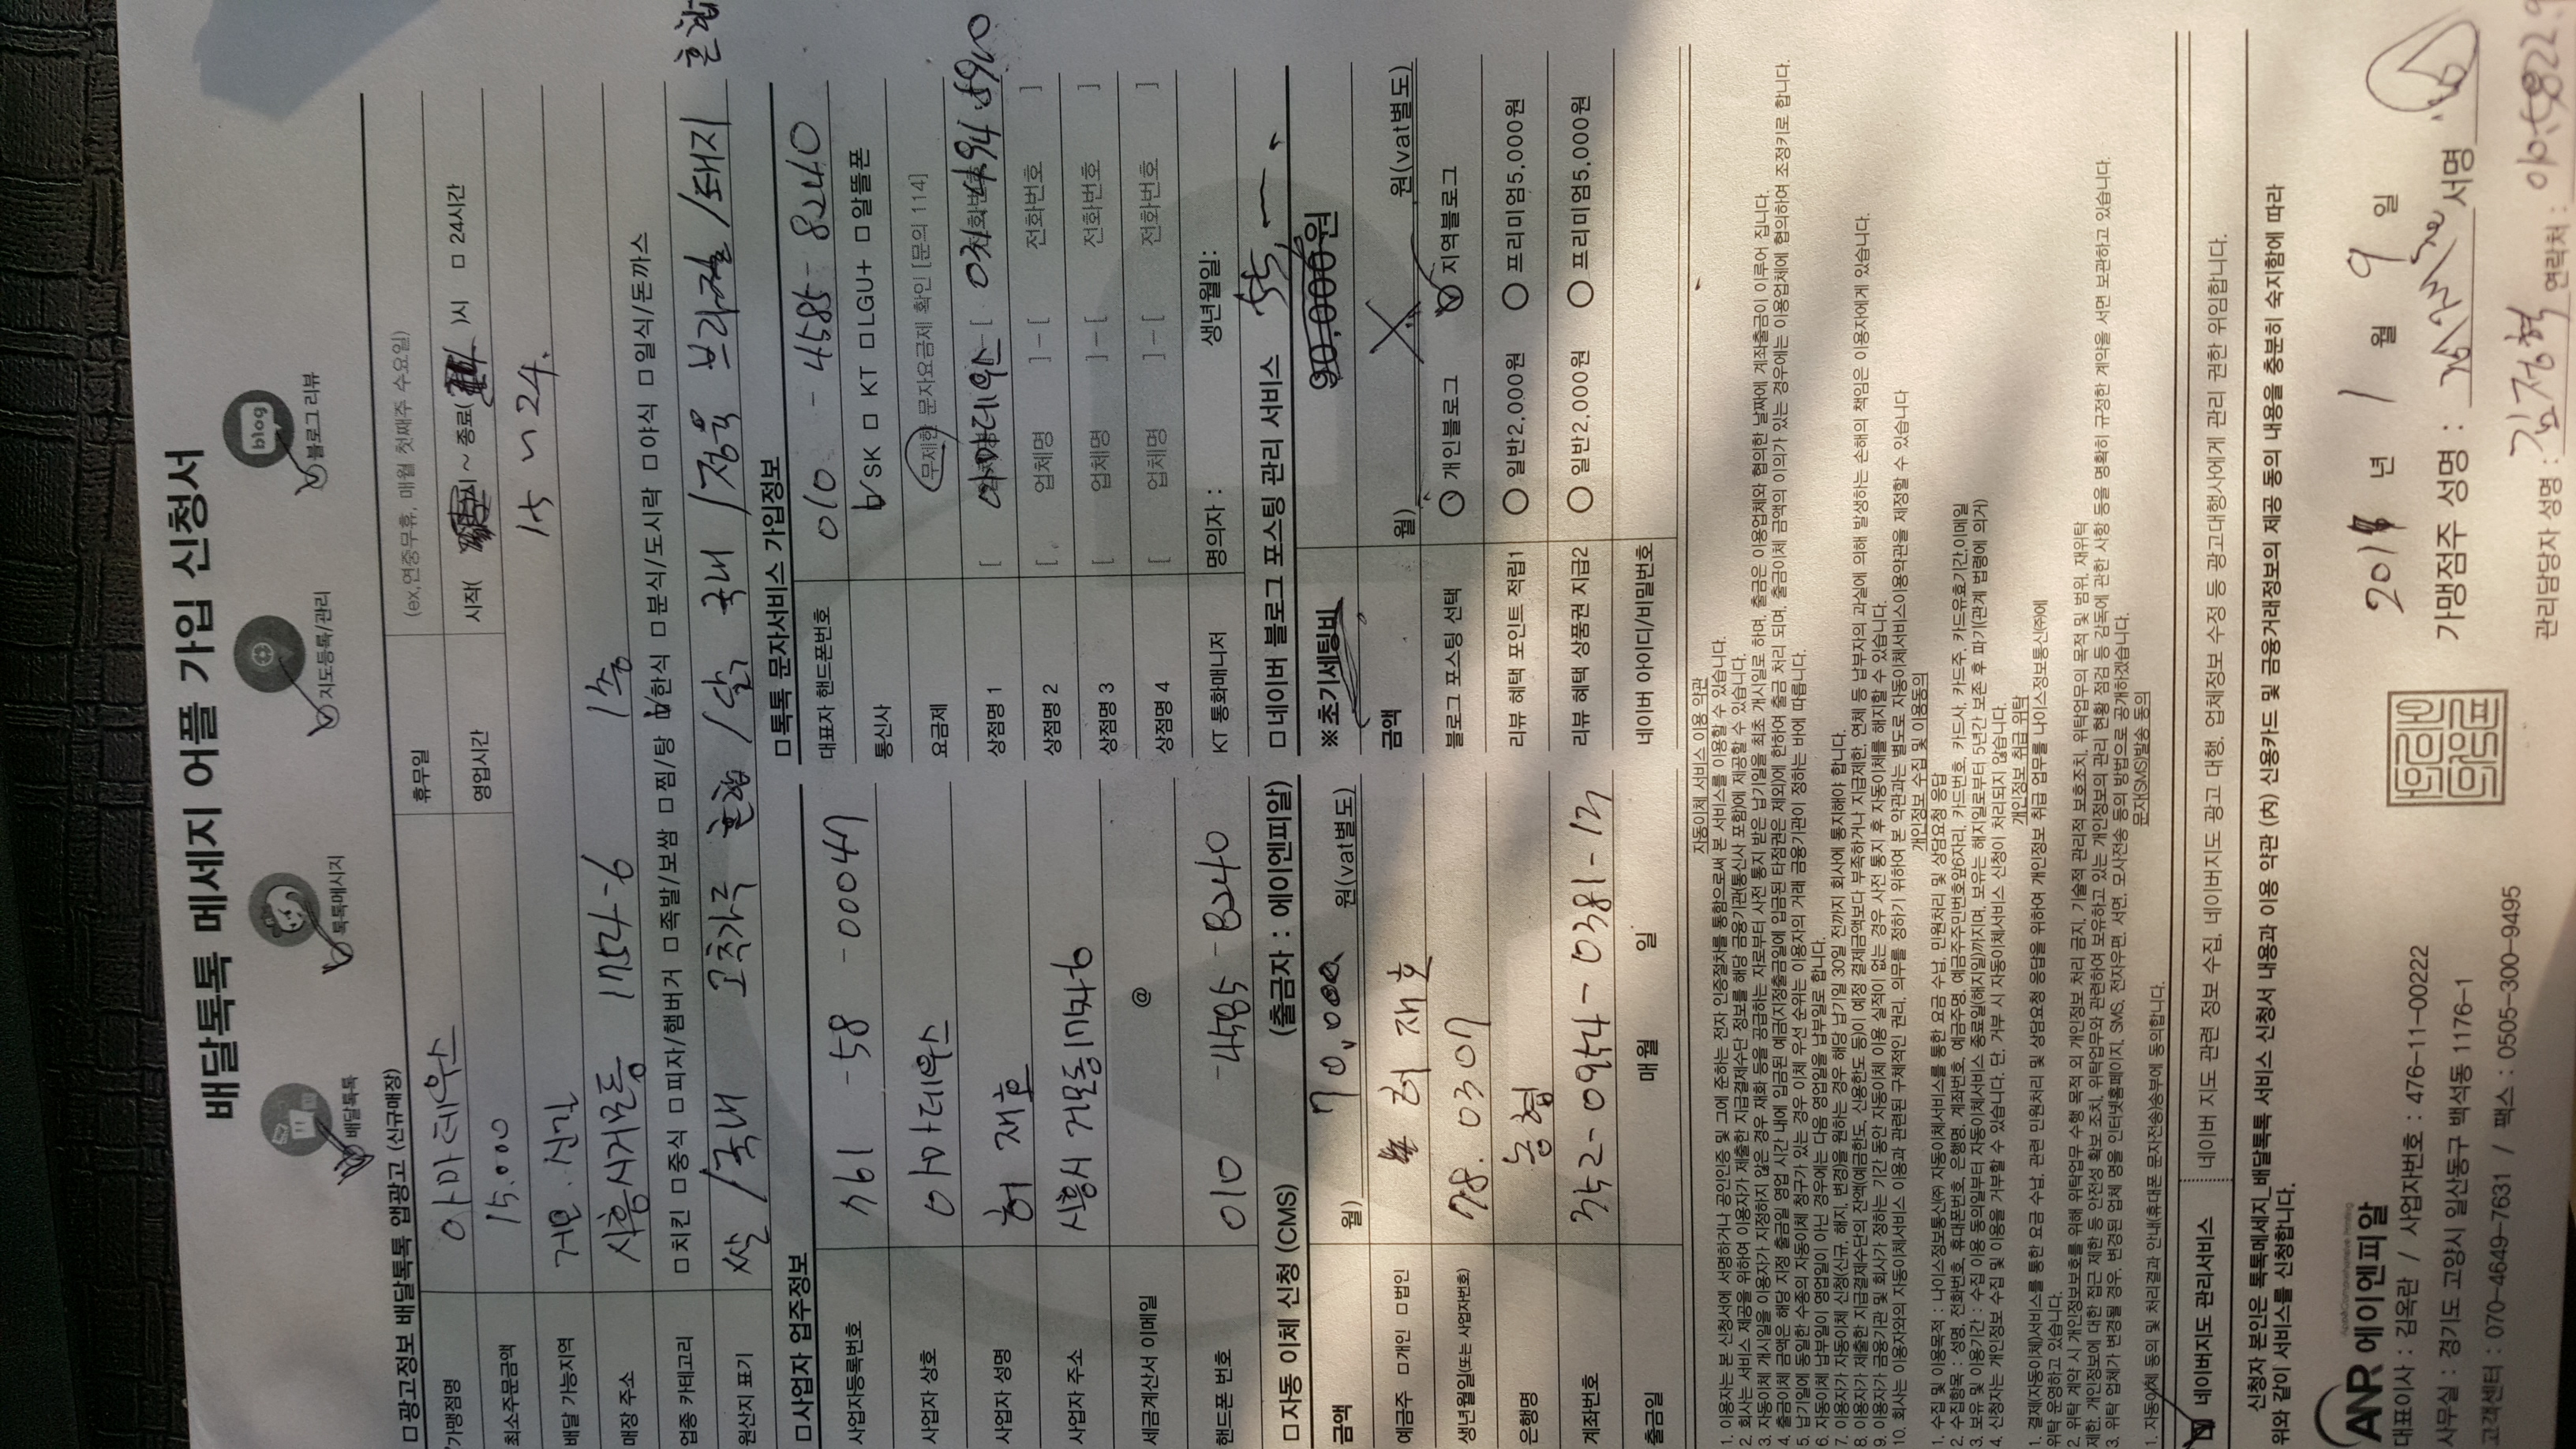 배달톡톡 메세지 어플 가입 신청서
blog
배달톡톡 톡톡메시지 지도등록/관리 블로그 리뷰
□광고정보 배달톡톡 앱광고 (신규매장)
가맹점명 아마데우스 휴무일 (ex,연중무휴, 매월 첫째주 수요일)
최소주문금액 15.000 영업시간 시작( )시 ~ 종료( )시 □ 24시간
15 ~ 24.
배달 가능지역 거모. 신길
매장 주소 시흥시거모동 1754-6 1층
업종 카테고리 □치킨 □중식 □피자/햄버거 □족발/보쌈 □찜/탕 ☑한식 □분식/도시락 □야식 □일식/돈까스
원산지 표기 쌀/국내 고추가루 혼합/닭 국내/정육 브라질/돼지 혼합
□사업자 업주정보
사업자등록번호 761 -58 -00047
사업자 상호 아마데우스
사업자 성명 허 재호
사업자 주소 시흥시 거모동1754-6
세금계산서 이메일 @
핸드폰 번호 010 -4585 -8240
□톡톡 문자서비스 가입정보
대표자 핸드폰번호 010 -4585-8240
통신사 ☑SK □ KT □LGU+ □알뜰폰
요금제 무제한 문자요금제 확인 [문의 114]
상점명 1 [ 아마데우스 ]-[ 031 494
상점명 2 [ 업체명 ]-[ 전화번호 ]
상점명 3 [ 업체명 ]-[ 전화번호 ]
상점명 4 [ 업체명 ]-[ 전화번호 ]
KT 통화매니저 명의자 : 생년월일:
□자동 이체 신청 (CMS) (출금자 : 에이엔피알)
금액 월) 70,000 원(vat별도)
예금주 □개인 □법인 허 재호
생년월일(또는 사업자번호) 78. 0307
은행명 농협
계좌번호 352-0954-0381-13
출금일 매월 일
□네이버 블로그 포스팅 관리 서비스 55,
※초기세팅비 90,000원
금액 월) 원(vat별도)
블로그 포스팅 선택 ○ 개인블로그 ☑ 지역블로그
리뷰 혜택 포인트 적립1 ○ 일반2,000원 ○ 프리미엄5,000원
리뷰 혜택 상품권 지급2 ○ 일반2,000원 ○ 프리미엄5,000원
네이버 아이디/비밀번호
자동이체 서비스 이용 약관
1. 이용자는 본 신청서에 서명하거나 공인인증 및 그에 준하는 전자 인증절차를 통함으로써 본 서비스를 이용할 수 있습니다.
2. 회사는 서비스 제공을 위하여 이용자가 제출한 지급결제수단 정보를 해당 금융기관(통신사 포함)에 제공할 수 있습니다.
3. 자동이체 개시일을 이용자가 지정하지 않은 경우 재화 등을 공급하는 자로부터 사전 통지 받은 납기일을 최초 개시일로 하며, 출금은 이용업체와 협의한 날짜에 계좌출금이 이루어 집니다.
4. 출금이체 금액은 해당 지정 출금일 영업 시간 내에 입금된 예금(지정출금일에 입금된 타점권은 제외)에 한하여 출금 처리 되며, 출금이체 금액의 이의가 있는 경우에는 이용업체에 협의하여 조정키로 합니다.
5. 납기일에 동일한 수종의 자동이체 청구가 있는 경우 이체 우선 순위는 이용자의 거래 금융기관이 정하는 바에 따릅니다.
6. 자동이체 납부일이 영업일이 아닌 경우에는 다음 영업일을 납부일로 합니다.
7. 이용자가 자동이체 신청(신규, 해지, 변경)을 원하는 경우 해당 납기일 30일 전까지 회사에 통지해야 합니다.
8. 이용자가 제출한 지급결제수단의 잔액(예금한도, 신용한도 등)이 예정 결제금액보다 부족하거나 지급제한, 연체 등 납부자의 과실에 의해 발생하는 손해의 책임은 이용자에게 있습니다.
9. 이용자가 금융기관 및 회사가 정하는 기간 동안 자동이체 이용 실적이 없는 경우 사전 통지 후 자동이체를 해지할 수 있습니다.
10. 회사는 이용자와의 자동이체서비스 이용과 관련된 구체적인 권리, 의무를 정하기 위하여 본 약관과는 별도로 자동이체서비스이용약관을 제정할 수 있습니다
개인정보 수집 및 이용동의
1. 수집 및 이용목적 : 나이스정보통신㈜ 자동이체서비스를 통한 요금 수납, 민원처리 및 상담요청 응답
2. 수집항목 : 성명, 전화번호, 휴대폰번호, 은행명, 계좌번호, 예금주명, 예금주주민번호앞6자리, 카드번호, 카드사, 카드주, 카드유효기간,이메일
3. 보유 및 이용기간 : 수집 이용 동의일부터 자동이체서비스 종료일(해지일)까지며, 보유는 해지일로부터 5년간 보존 후 파기(관계 법령에 의거)
4. 신청자는 개인정보 수집 및 이용을 거부할 수 있습니다. 단, 거부 시 자동이체서비스 신청이 처리되지 않습니다.
개인정보 취급 위탁
1. 결제(자동이체)서비스를 통한 요금 수납, 관련 민원처리 및 상담요청 응답을 위하여 개인정보 취급 업무를 나이스정보통신㈜에
위탁 운영하고 있습니다.
2. 위탁 계약 시 개인정보보호를 위해 위탁업무 수행 목적 외 개인정보 처리 금지, 기술적 관리적 보호조치, 위탁업무의 목적 및 범위, 재위탁
제한, 개인정보에 대한 접근 제한 등 안전성 확보 조치, 위탁업무와 관련하여 보유하고 있는 개인정보의 관리 현황 점검 등 감독에 관한 사항 등을 명확히 규정한 계약을 서면 보관하고 있습니다.
3. 위탁 업체가 변경될 경우, 변경된 업체 명을 인터넷홈페이지, SMS, 전자우편, 서면, 모사전송 등의 방법으로 공개하겠습니다.
문자(SMS)발송 동의
1. 자동이체 동의 및 처리결과 안내(휴대폰 문자전송)송부에 동의합니다.
☑ 네이버지도 관리서비스 네이버 지도 관련 정보 수집, 네이버지도 광고 대행, 업체정보 수정 등 광고대행사에게 관리 권한 위임합니다.
신청자 본인은 톡톡메세지_배달톡톡 서비스 신청서 내용과 이용 약관 (內) 신용카드 및 금융거래정보의 제공 동의 내용을 충분히 숙지함에 따라
위와 같이 서비스를 신청합니다.
App&Comprehensive Printing
ANR 에이엔피알
대표이사 : 김옥란 / 사업자번호 : 476-11-00222
사무실 : 경기도 고양시 일산동구 백석동 1176-1
고객센터 : 070-4649-7631 / 팩스 : 0505-300-9495
년 1 월 9 일
가맹점주 성명 : 허재호 서명
관리담당자 성명 : 김정혁 연락처 : 010.5822.9